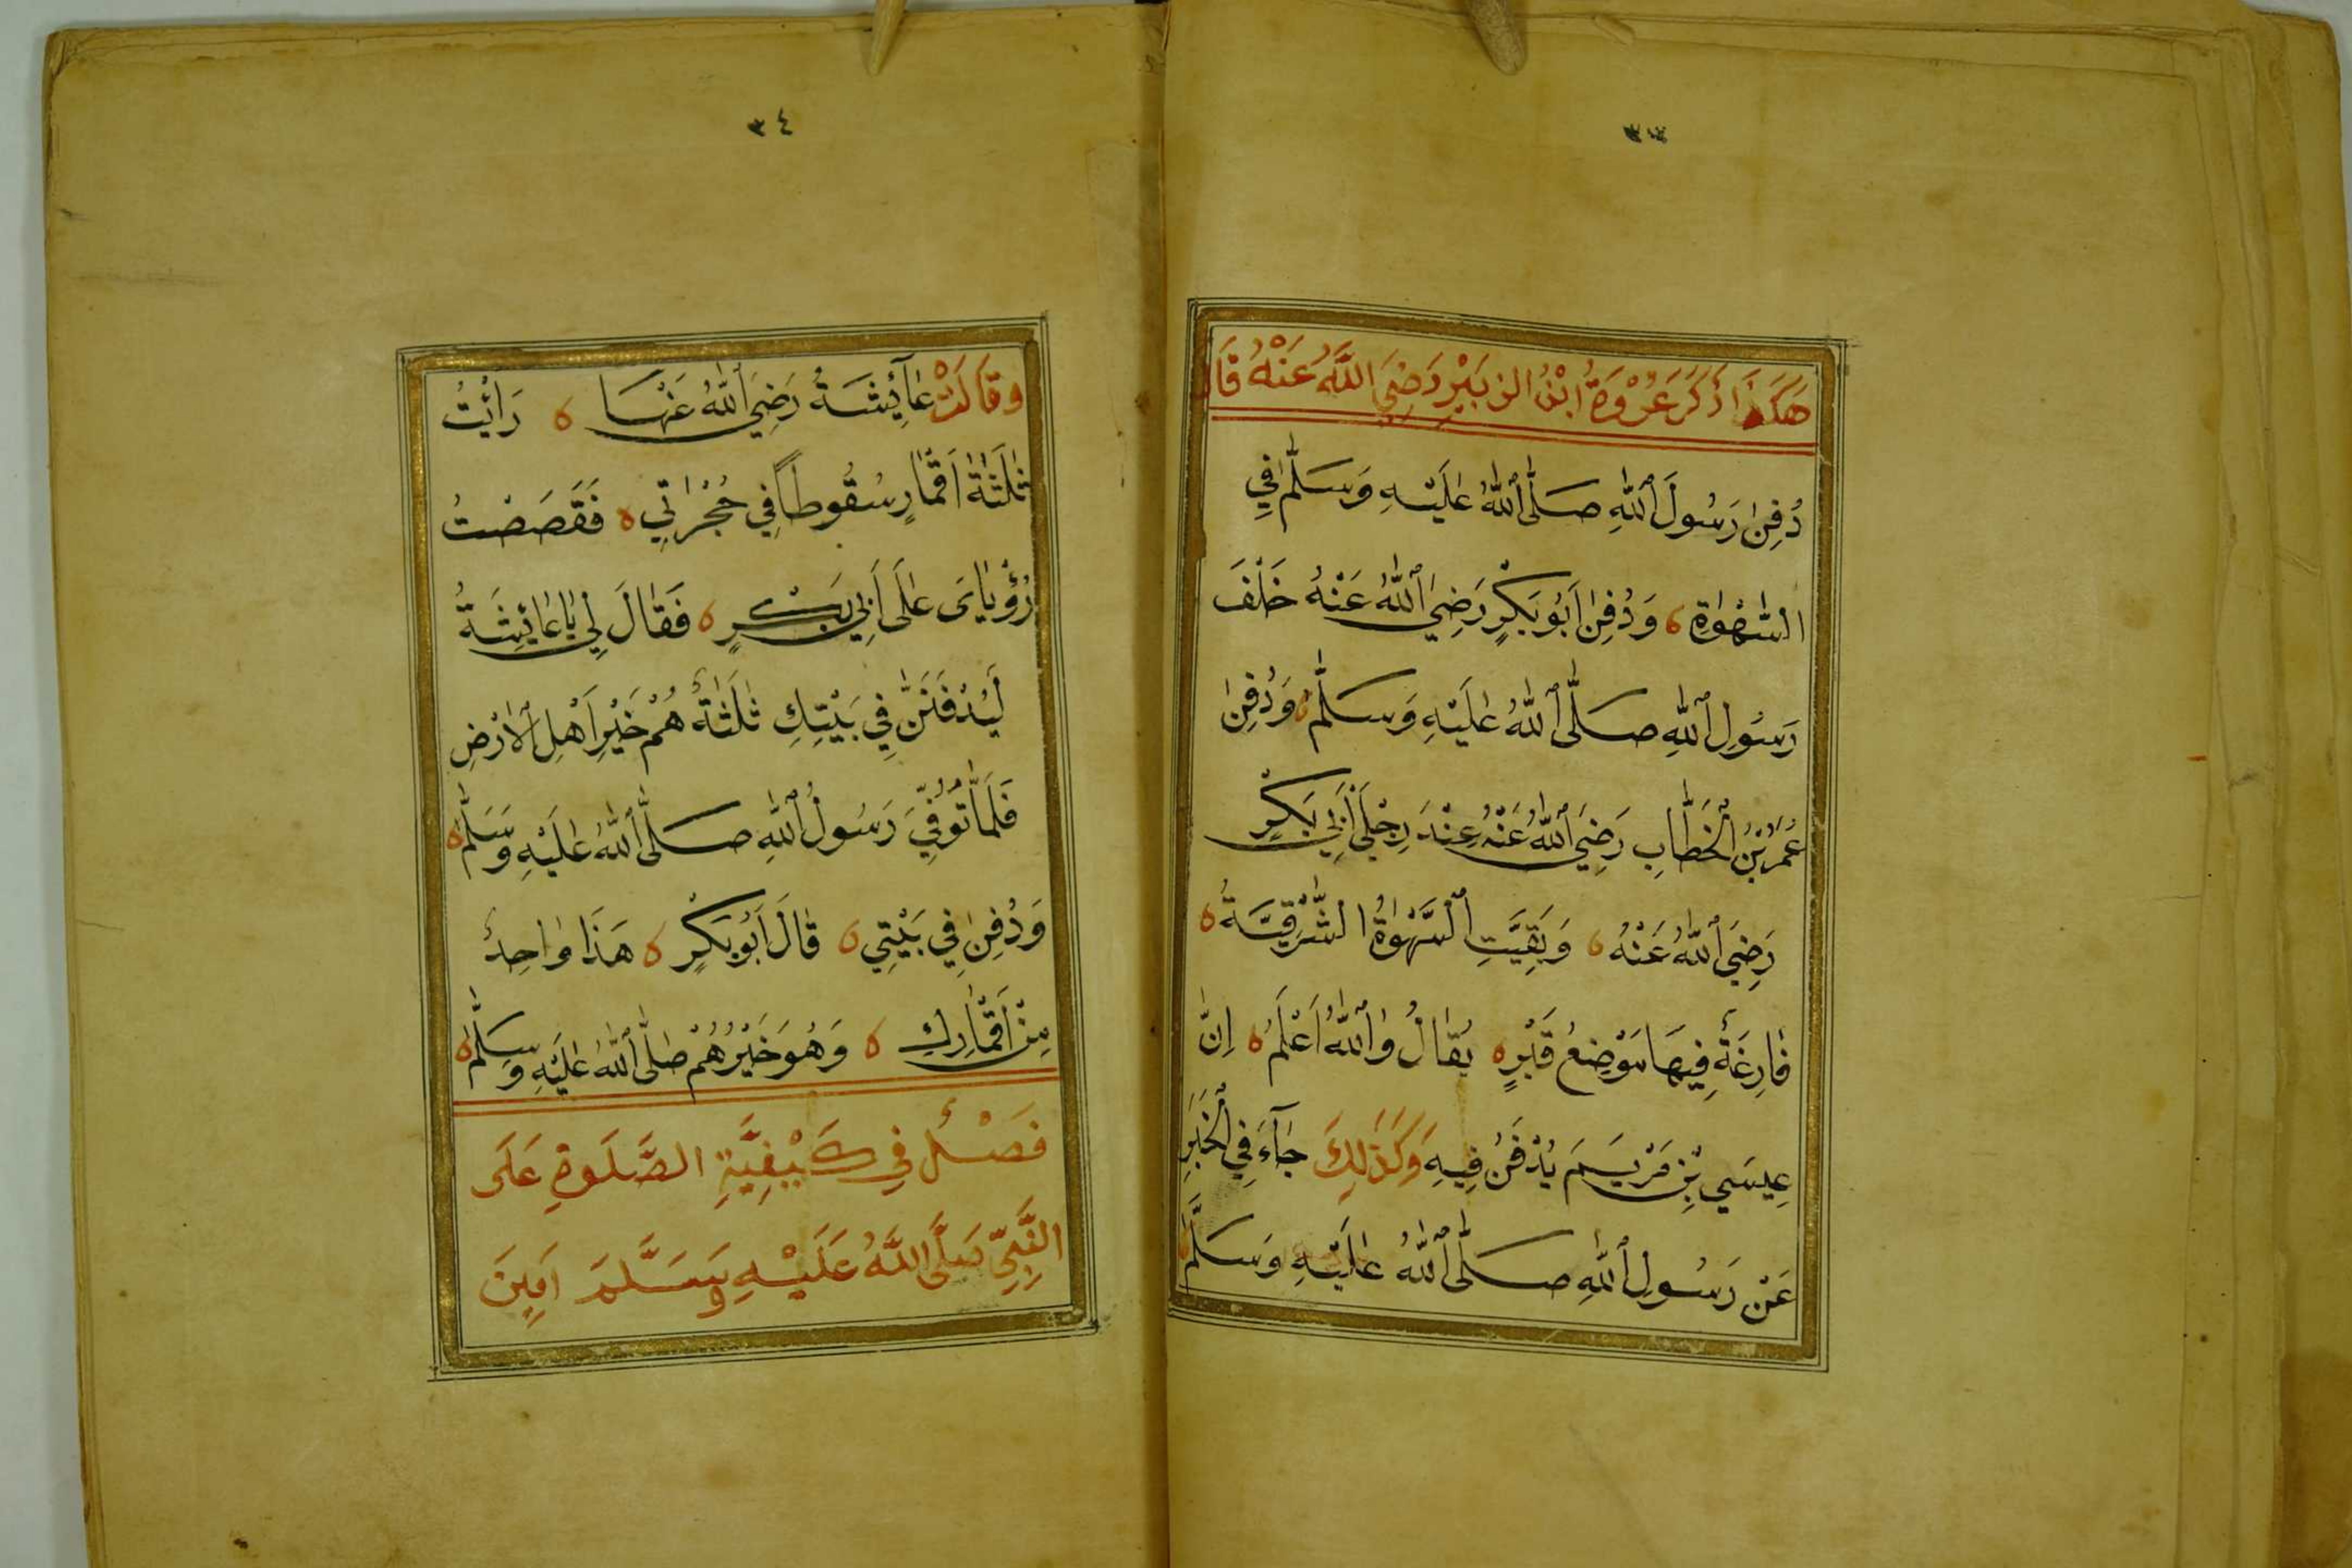 هَكَذَا ذَكَرَ عُرْوَةُ ابْنُ الزُّبَيْرِ رَضِيَ اللَّهُ عَنْهُ قَالَ
دُفِنَ رَسُولَ اللهِ صَلَّى اللهُ عَلَيْهِ وَسَلَّمَ فِي
السَّهْوَةِ ٥ وَدُفِنَ اَبُو بَكْرٍ رَضِيَ اللهُ عَنْهُ خَلْفَ
رَسُولِ اللهِ صَلَّى اللهُ عَلَيْهِ وَسَلَّمَ ٥ وَدُفِنَ
عُمَرُ بْنُ الْخَطَّابِ رَضِيَ اللهُ عَنْهُ عِنْدَ رِجْلَيْ اَبِي بَكْرٍ
رَضِيَ اللهُ عَنْهُ ٥ وَبَقِيَتِ السَّهْوَةُ الشَّرْقِيَّةُ ٥
فَارِغَةً فِيهَا مَوْضِعُ قَبْرٍ ٥ يُقَالُ وَاللهُ اَعْلَمُ ٥ اِنَّ
عِيسَي بْنِ مَرْيَمَ يُدْفَنُ فِيهِ وَكَذٰلِكَ جَآءَ فِي الْخَبَرِ
عَنْ رَسُولِ اللهِ صَلَّى اللهُ عَلَيْهِ وَسَلَّمَ
٣٤
وَقَالَتْ عَآئِشَةُ رَضِيَ اللهُ عَنْهَا ٥ رَاَيْتُ
ثَلٰثَةَ اَقْمَارٍ سُقُوطاً فِي حُجْرَاتِي ٥ فَقَصَصْتُ
رُؤْيَايَ عَلَى اَبِي بَكْرٍ ٥ فَقَالَ لِي يَا عَائِشَةُ
لَيُدْفَنَنَّ فِي بَيْتِكِ ثَلٰثَةٌ هُمْ خَيْرِ اَهْلِ الْاَرْضِ
فَلَمَّا تُوُفِّيَ رَسُولُ اللهِ صَلَّى اللهُ عَلَيْهِ وَسَلَّمَ ٥
وَدُفِنَ فِي بَيْتِي ٥ قَالَ اَبُو بَكْرٍ ٥ هَذَا وَاحِدٌ
مِنْ اَقْمَارِكِ ٥ وَهُوَ خَيْرُهُمْ صَلَّى اللهُ عَلَيْهِ وَسَلَّمَ ٥
فَصْلٌ فِي كَيْفِيَّةِ الصَّلَوةِ عَلَى
النَّبِيِّ صَلَّى اللَّهُ عَلَيْهِ وَسَلَّمَ اَمِينَ